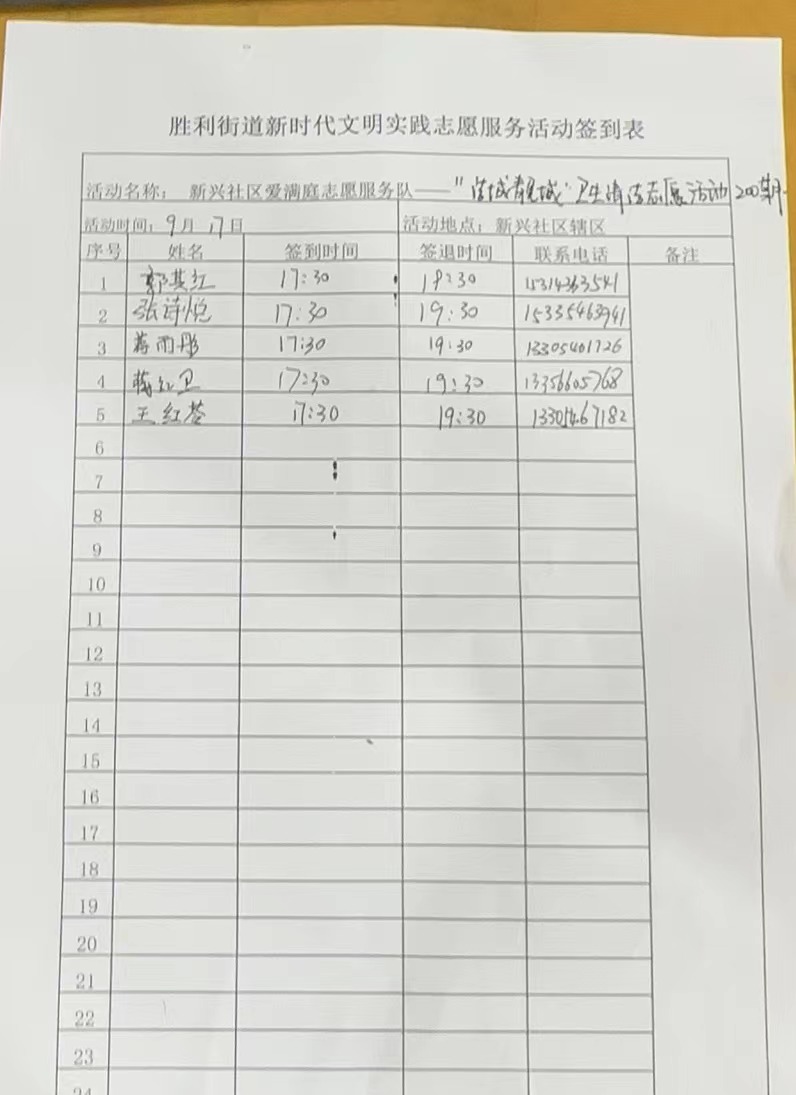 胜利街道新时代文明实践志愿服务活动签到表
活动名称: 新兴社区爱满庭志愿服务队——"洁城靓城"卫生清洁志愿活动200期
活动时间: 9月17日 活动地点: 新兴社区辖区
序号 姓名 签到时间 签退时间 联系电话 备注
1 郭其红 17:30 19:30 15314363541
2 张诗悦 17:30 19:30 15335463941
3 蒋雨彤 17:30 19:30 13305401726
4 蒋红卫 17:30 19:30 13356605768
5 王红苓 17:30 19:30 13305467182
6
7
8
9
10
11
12
13
14
15
16
17
18
19
20
21
22
23
24